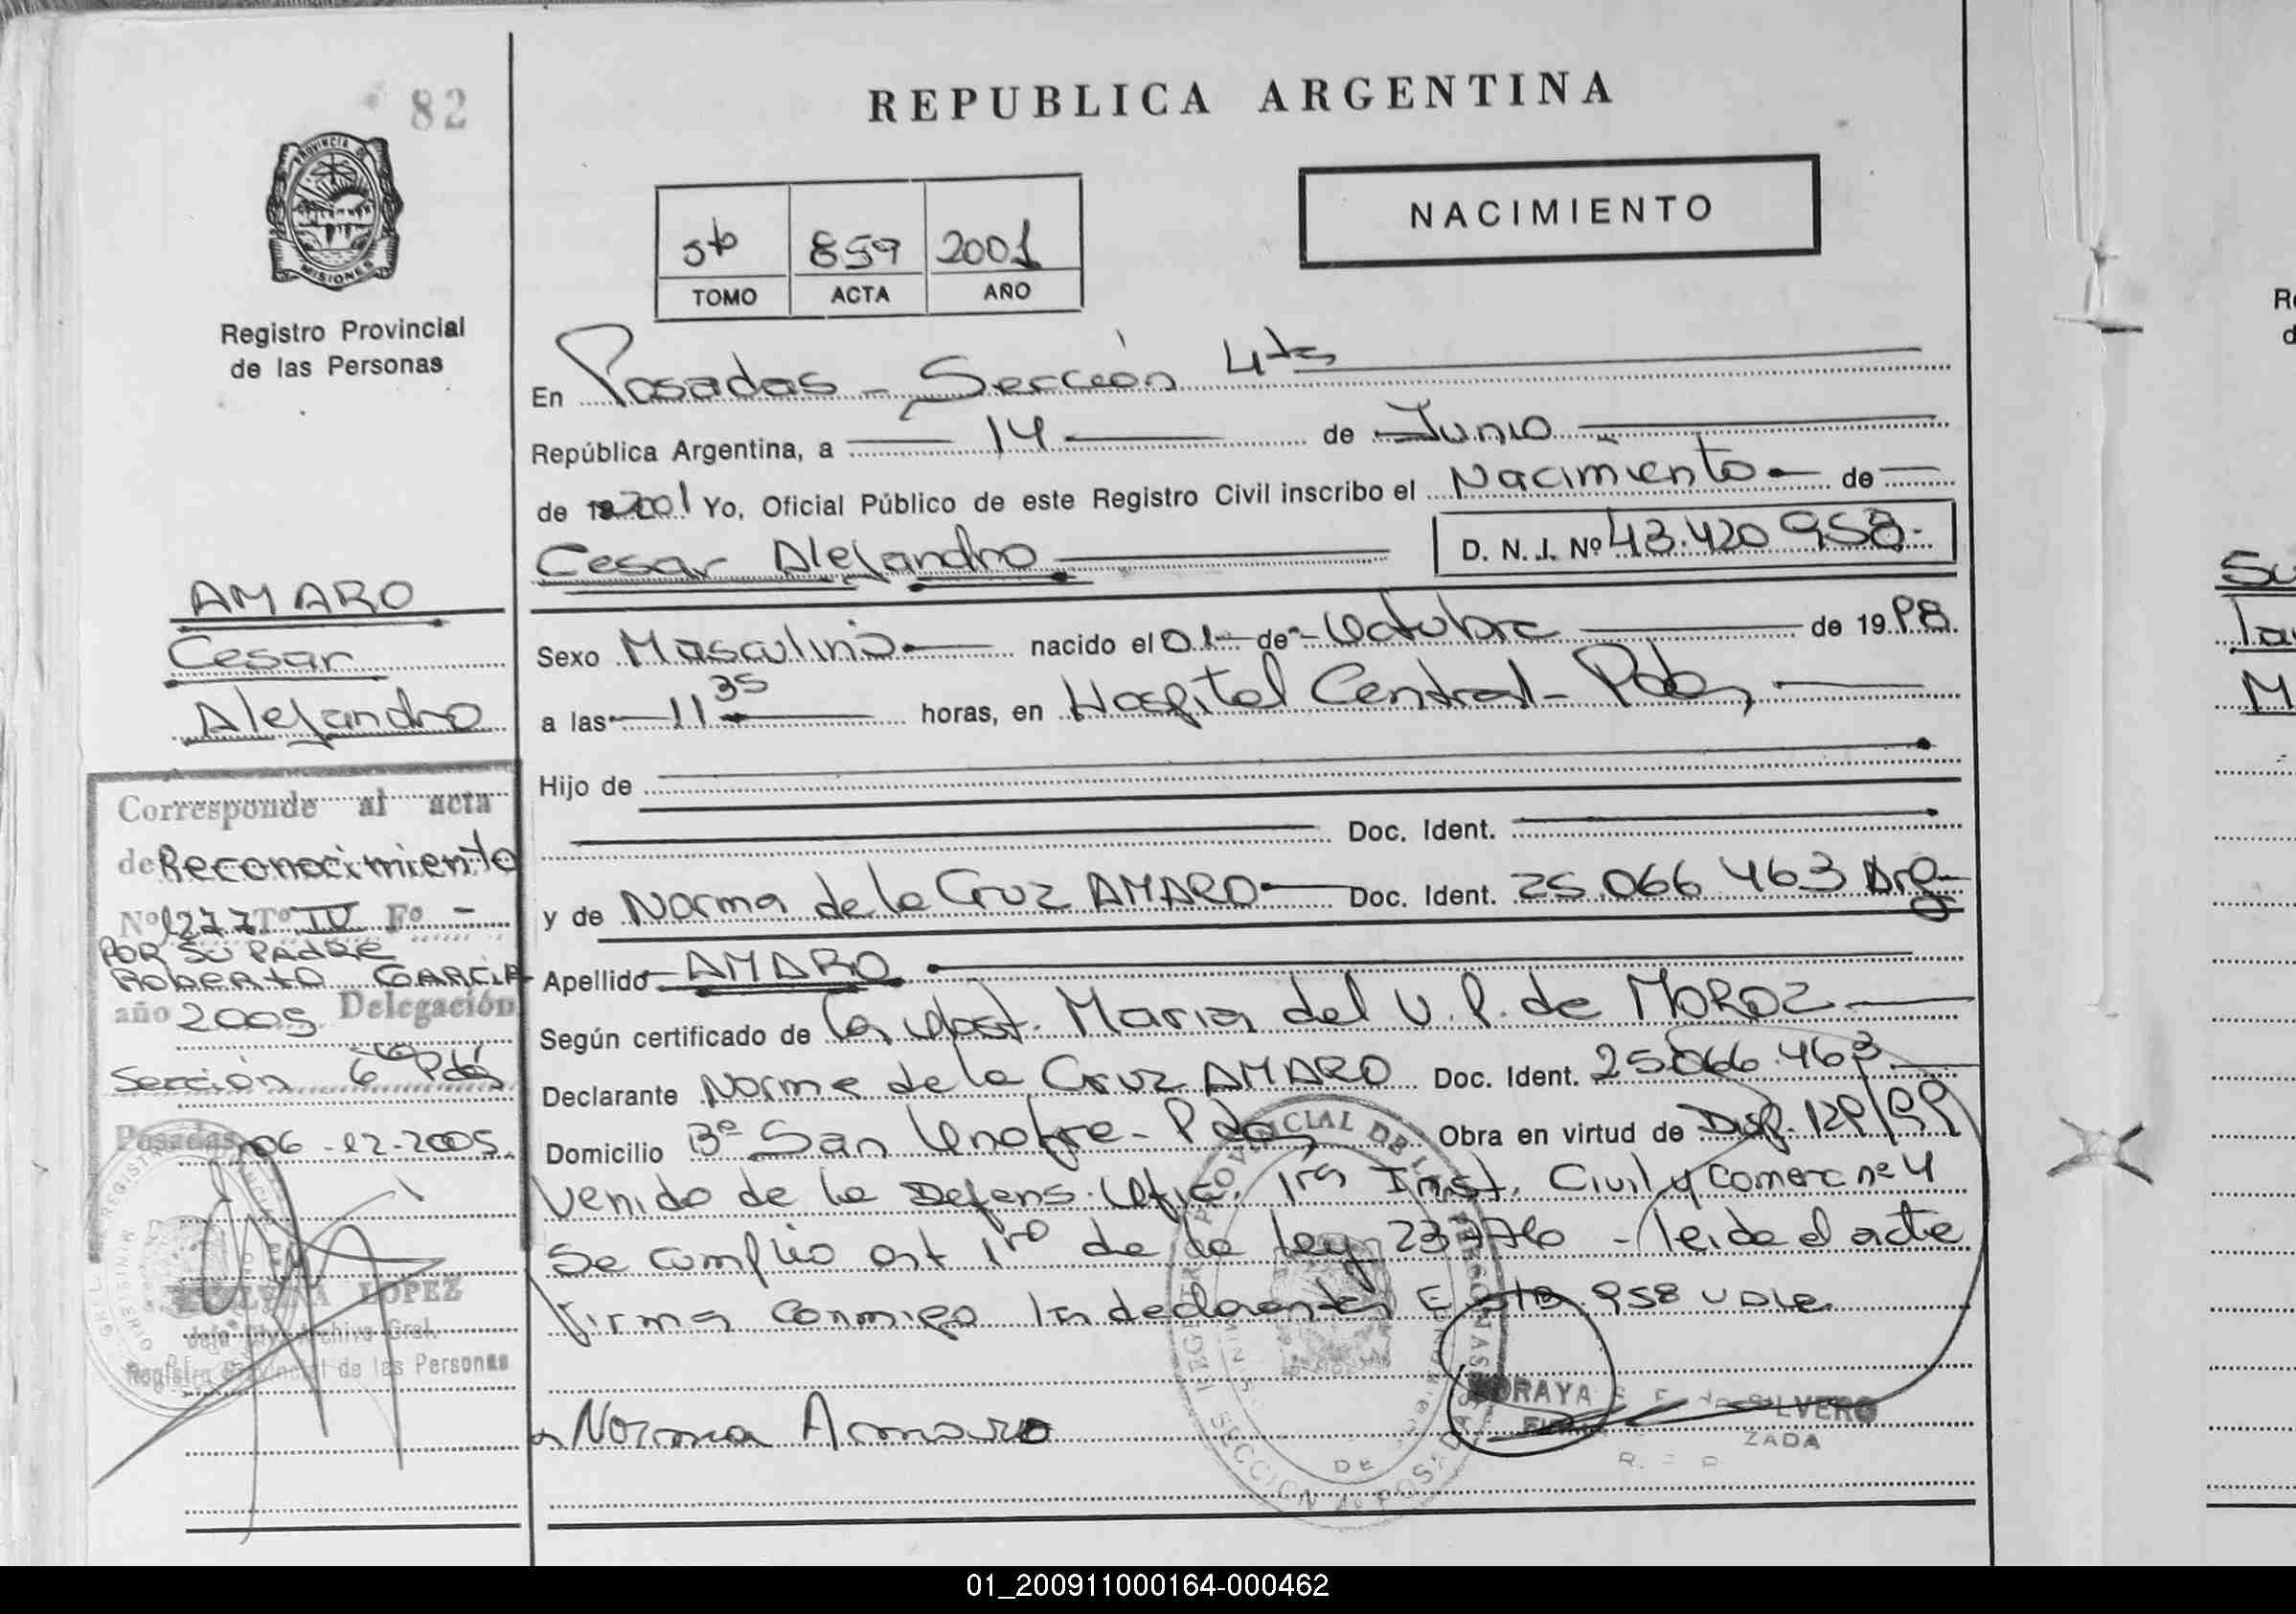 82
REPUBLICA ARGENTINA
PROVINCIA DE
MISIONES
Registro Provincial
de las Personas
5to 859 2001
TOMO ACTA AÑO
NACIMIENTO
En Posadas - Sección 4ta
República Argentina, a 14 de Junio
de 2001 Yo, Oficial Público de este Registro Civil inscribo el Nacimiento de
Cesar Alejandro D. N. I. Nº 43.420 958.
Sexo Masculino nacido el 01 de Octubre de 1998
a las 11 35 horas, en Hospital Central - Pdas
Hijo de
Doc. Ident.
y de Norma de la Cruz AMARO Doc. Ident. 25.066.463 Arg
Apellido AMARO
Según certificado de la Obst. Maria del V. P. de MOROZ
Declarante Norma de la Cruz AMARO Doc. Ident. 25.066.463
Domicilio Bº San Onofre - Pdas Obra en virtud de Disp. 129/99
venido de la Defens. Ofic. 1ra Inst. Civil y Comerc nº 4
Se cumplio art 1ro de la ley 23776 - leida el acta
firma conmigo la declarante E 958 VALE
Norma Amaro
SORAYA SILVERO
ZADA
AMARO
Cesar
Alejandro
Corresponde al acta
de Reconocimiento
Nº 1277 Tº IV Fº -
POR SU PADRE
ROBERTO GARCIA
año 2005 Delegación
Sección 6ta Pdas
Posadas, 06-12-2005.
LOPEZ
Jefa Archivo Gral.
Registro Provincial de las Personas
01_200911000164-000462